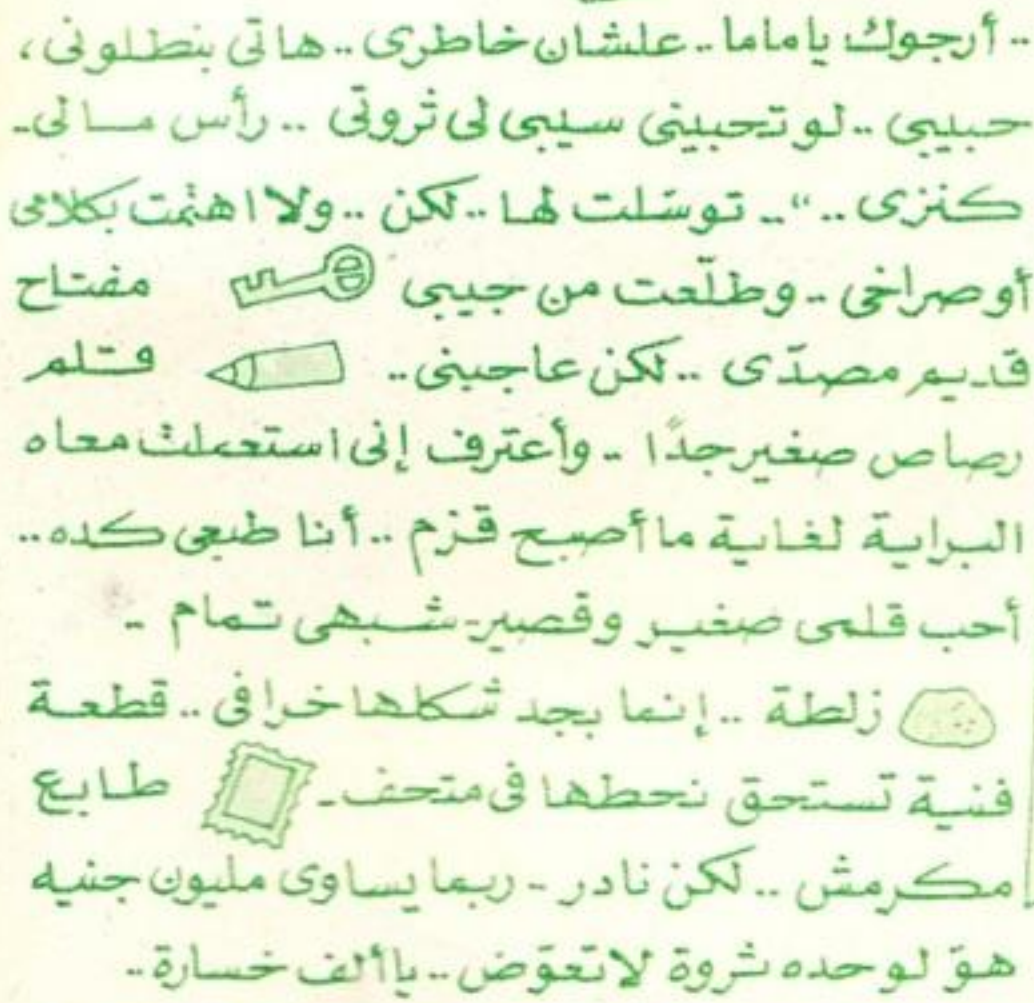 .. أرجوك يا ماما .. علشان خاطرى .. هاتى بنطلونى ،
حبيبى .. لو تحبينى سيبى لى ثروتى .. رأس مالى ..
كنزى .. “.. توسّلت لها .. لكن .. ولا اهتمت بكلامى
أو صراخى .. وطلّعت من جيبى مفتاح
قديم مصدّى .. لكن عاجبنى .. قلم
رصاص صغير جدًا .. وأعترف إنى استعملت معاه
البراية لغاية ما أصبح قزم .. أنا طبعى كده ..
أحب قلمى صغير وقصير - شبهى تمام ..
زلطة .. إنما بجد شكلها خرافى .. قطعة
فنية تستحق نحطها فى متحف .. طابع
مكرمش .. لكن نادر .. ربما يساوى مليون جنيه
هوّ لوحده ثروة لا تعوّض .. يا ألف خسارة ..